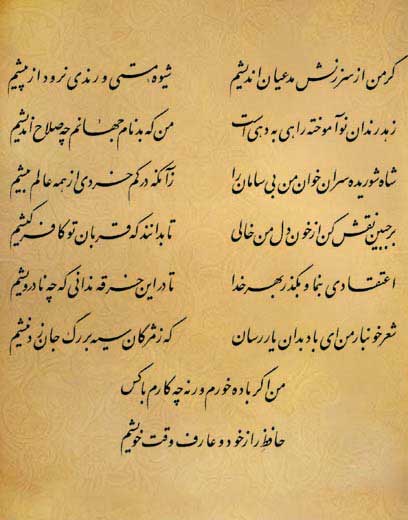 گر من از سرزنش مدعیان اندیشم شیوه مستی و رندی نرود از پیشم
زهد رندان نوآموخته راهی به دهی است من که بدنام جهانم چه صلاح اندیشم
شاه شوریده سران خوان من بی سامان را زآنکه در کم خردی از همه عالم بیشم
بر جبین نقش کن از خون دل من خالی تا بدانند که قربان تو کافر کیشم
اعتقادی بنما و بگذر بهر خدا تا در این خرقه ندانی که چه نادرویشم
شعر خونبار من ای باد بدان یار رسان که ز مژگان سیه بر رگ جان زد نیشم
من اگر باده خورم ورنه چه کارم با کس
حافظ راز خود و عارف وقت خویشم